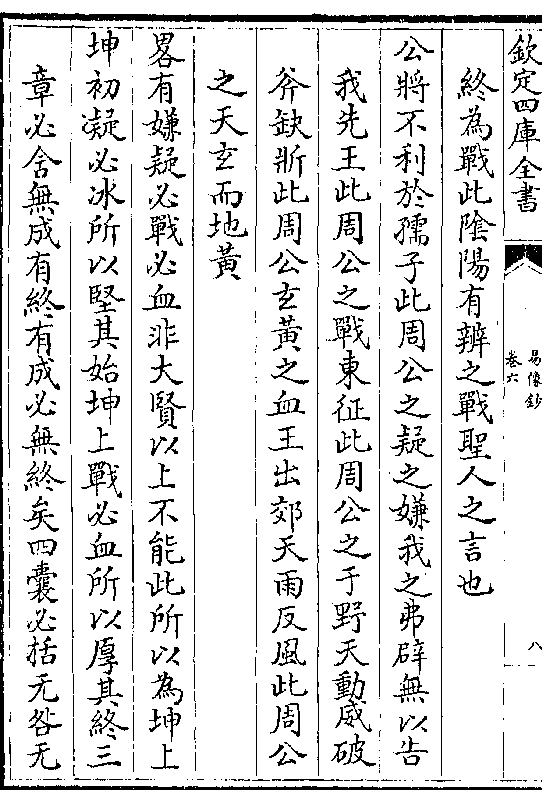 欽定四庫全書
易像鈔
卷六
八
終為戰此陰陽有辨之戰聖人之言也
公將不利於孺子此周公之疑之嫌我之弗辟無以告
我先王此周公之戰東征此周公之于野天動威破
斧缺斨此周公玄黃之血王出郊天雨反風此周公
之天玄而地黃
畧有嫌疑必戰必血非大賢以上不能此所以為坤上
坤初凝必冰所以堅其始坤上戰必血所以厚其終三
章必含無成有終有成必無終矣四囊必括无咎无